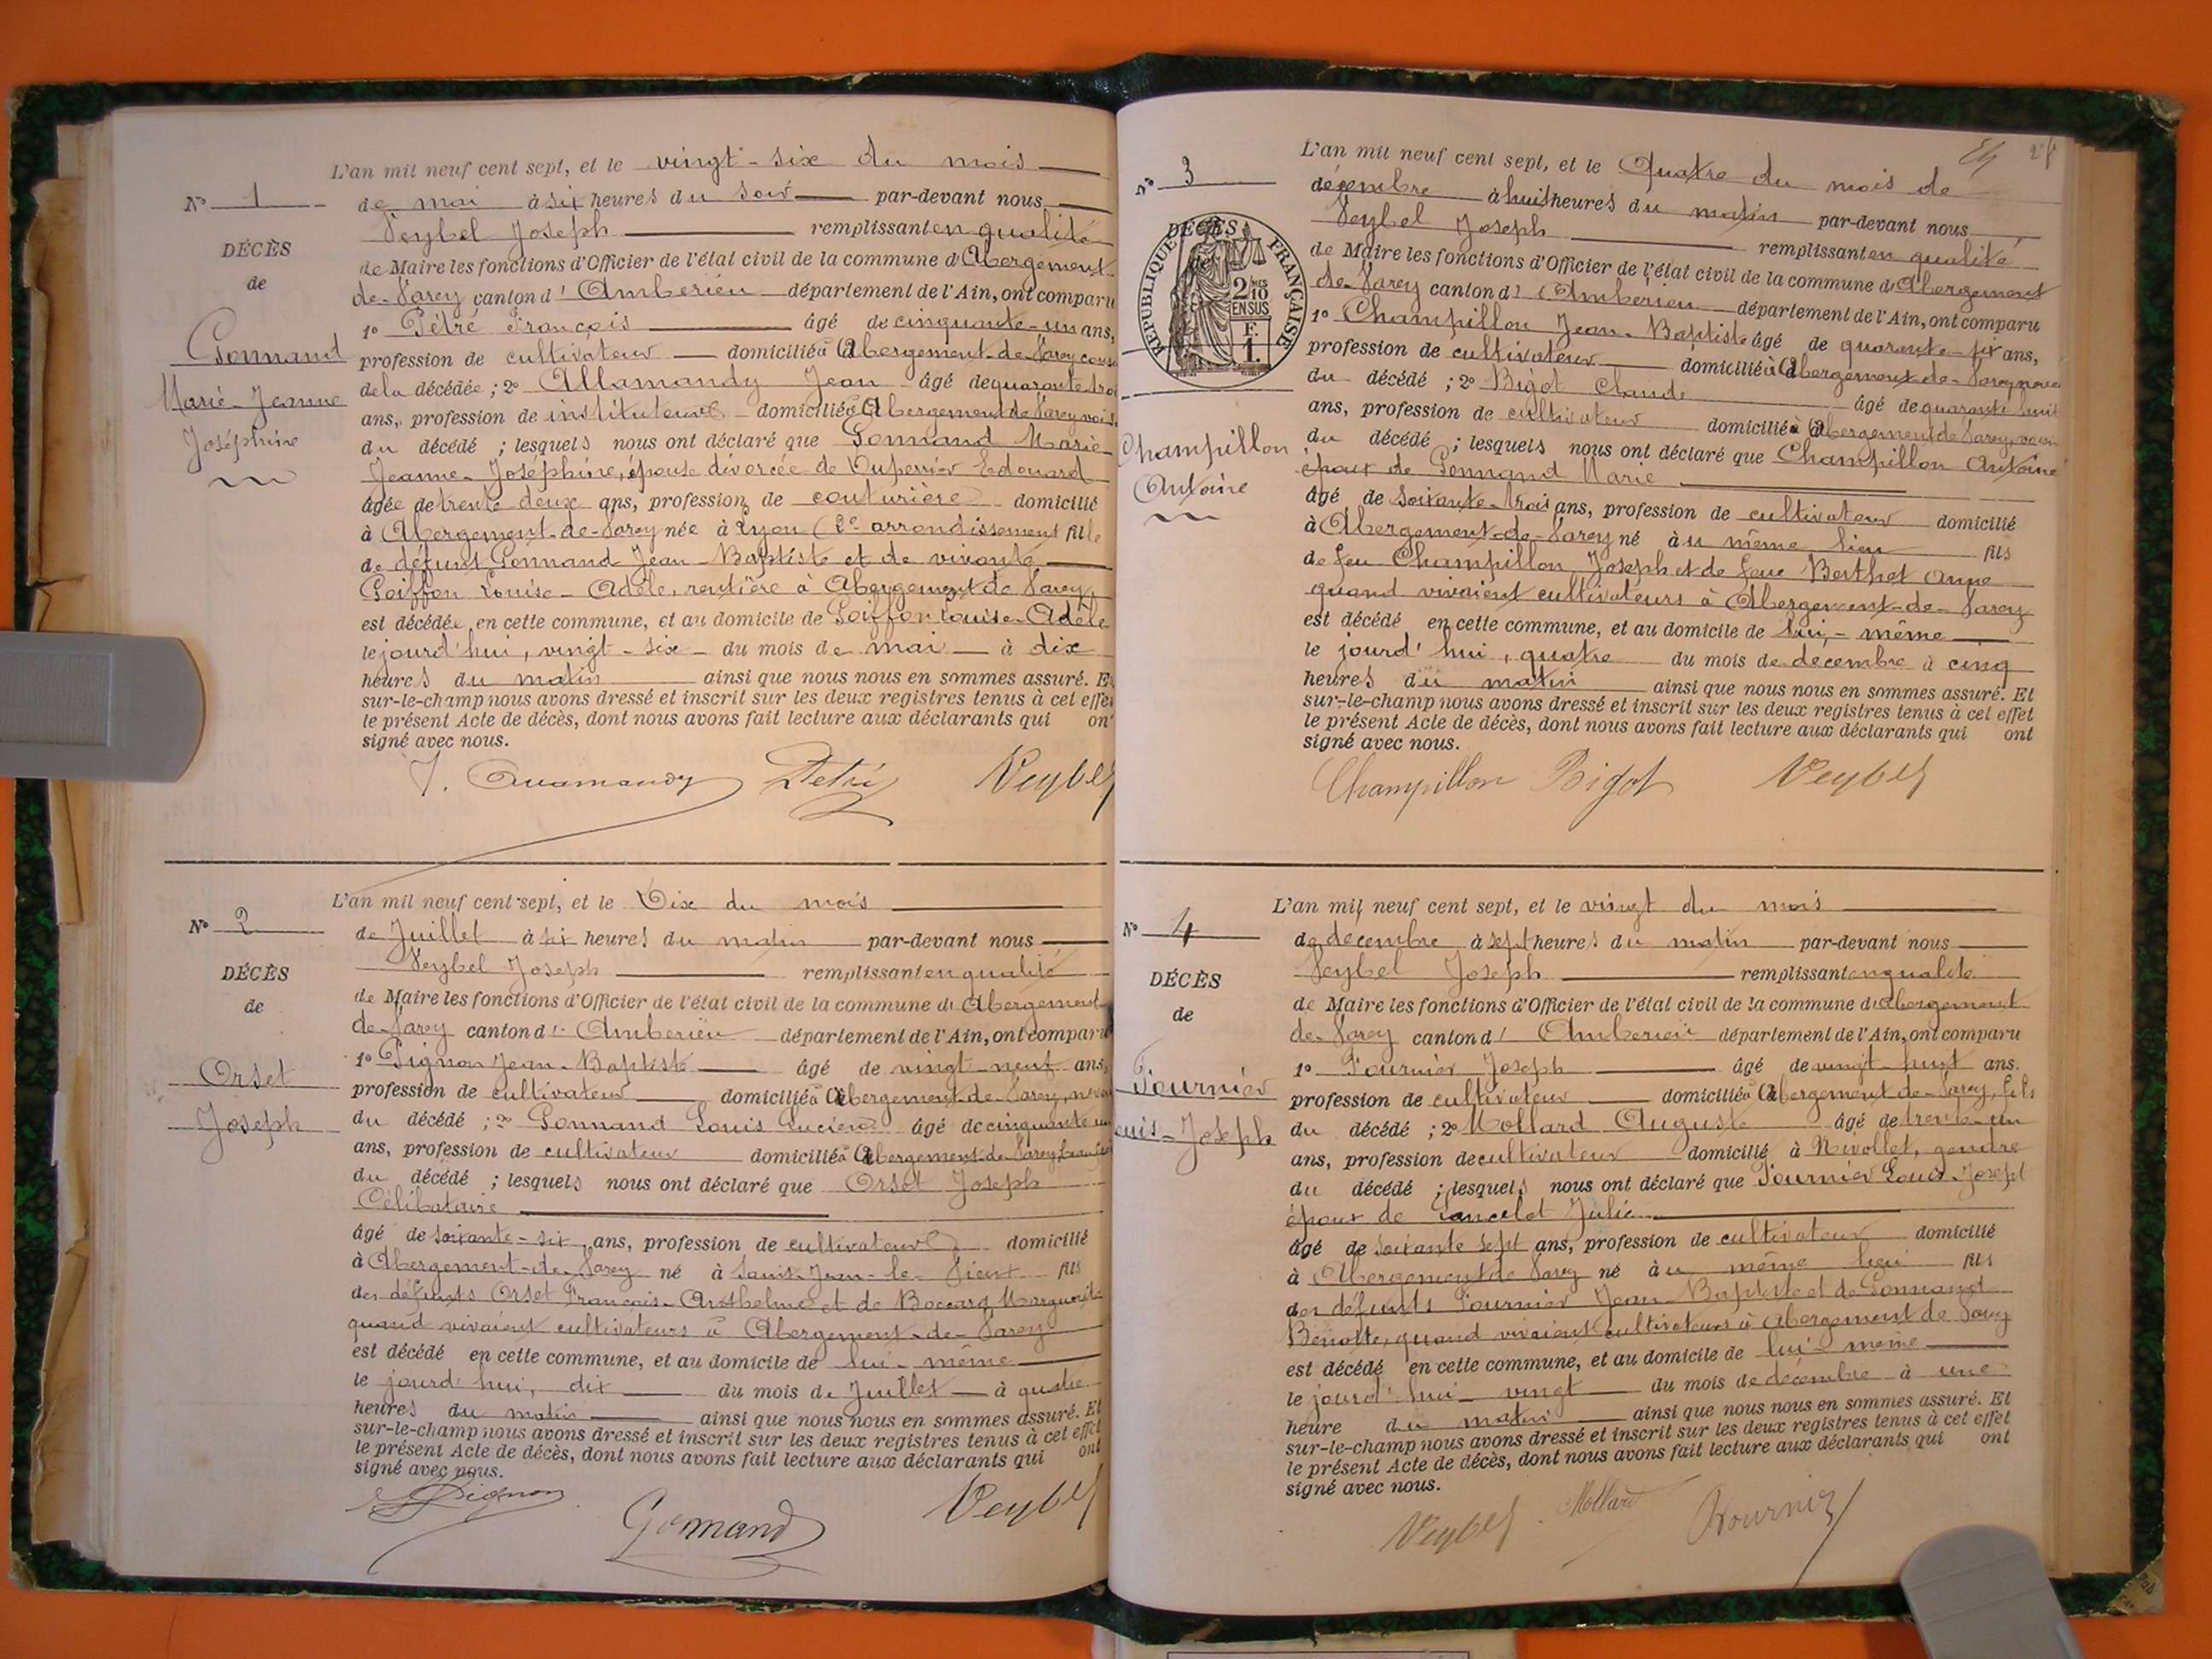 L'an mil neuf cent sept, et le vingt-six du mois
N° 1
de mai à six heures du soir par-devant nous
Veybel Joseph remplissant en qualité
DÉCÈS
de Maire les fonctions d'Officier de l'état civil de la commune d'Abergement
de
de-Varey canton d' Amberieu département de l'Ain, ont comparu
1° Pétré François âgé de cinquante-un ans,
Gonnand
profession de cultivateur domicilié à Abergement-de-Varey
Marie-Jeanne
de la décédée ; 2° Allamandy Jean âgé de quarante
Joséphine
ans, profession de instituteur domicilié à Abergement de Varey
du décédé ; lesquels nous ont déclaré que Gonnand Marie
Jeanne-Joséphine, épouse divorcée de Duperrier Edouard
âgée de trente deux ans, profession de couturière domicilié
à Abergement-de-Varey née à Lyon (2e arrondissement fille
de défunt Gonnand Jean-Baptiste et de vivante
Goiffon Louise-Adèle, rentière à Abergement de Varey
est décédée en cette commune, et au domicile de Goiffon Louise-Adèle
le jourd'hui, vingt-six du mois de mai à dix
heures du matin ainsi que nous nous en sommes assuré. Et
sur-le-champ nous avons dressé et inscrit sur les deux registres tenus à cet effet
le présent Acte de décès, dont nous avons fait lecture aux déclarants qui ont
signé avec nous.
J. Allamandy Pétré Veybel
L'an mil neuf cent sept, et le Dix du mois
N° 2
de Juillet à six heures du matin par-devant nous
Veybel Joseph remplissant en qualité
DÉCÈS
de Maire les fonctions d'Officier de l'état civil de la commune d' Abergement
de
de-Varey canton d' Amberieu département de l'Ain, ont comparu
1° Pignon Jean-Baptiste âgé de vingt-neuf ans,
Orset
profession de cultivateur domicilié à Abergement-de-Varey, neveu
Joseph
du décédé ; 2° Gonnand Louis Lucien âgé de cinquante
ans, profession de cultivateur domicilié à Abergement-de-Varey
du décédé ; lesquels nous ont déclaré que Orset Joseph
Célibataire
âgé de soixante-six ans, profession de cultivateur domicilié
à Abergement-de-Varey né à Saint-Jean-le-Vieux fils
des défunts Orset François-Anthelme et de Boccard Marguerite
quand vivaient cultivateurs à Abergement-de-Varey
est décédé en cette commune, et au domicile de lui-même
le jourd'hui, dix du mois de Juillet à quatre
heures du matin ainsi que nous nous en sommes assuré. Et
sur-le-champ nous avons dressé et inscrit sur les deux registres tenus à cet effet
le présent Acte de décès, dont nous avons fait lecture aux déclarants qui ont
signé avec nous.
Pignon Gonnand Veybel
L'an mil neuf cent sept, et le Quatre du mois de
N° 3
décembre à huit heures du matin par-devant nous
Veybel Joseph remplissant en qualité
DÉCÈS
RÉPUBLIQUE FRANÇAISE
2/10 EN SUS
F. 1.
de Maire les fonctions d'Officier de l'état civil de la commune d'Abergement
de-Varey canton d' Amberieu département de l'Ain, ont comparu
1° Champillon Jean-Baptiste âgé de quarante-six ans,
profession de cultivateur domicilié à Abergement-de-Varey neveu
du décédé ; 2° Bigot Claude âgé de quarante huit
ans, profession de cultivateur domicilié à Abergement de Varey, voisin
Champillon
du décédé ; lesquels nous ont déclaré que Champillon Antoine
Antoine
époux de Gonnand Marie
âgé de soixante-trois ans, profession de cultivateur domicilié
à Abergement-de-Varey né à u même lieu fils
de feu Champillon Joseph et de feue Berthet Anne
quand vivaient cultivateurs à Abergement-de-Varey
est décédé en cette commune, et au domicile de lui-même
le jourd'hui, quatre du mois de décembre à cinq
heures du matin ainsi que nous nous en sommes assuré. Et
sur-le-champ nous avons dressé et inscrit sur les deux registres tenus à cet effet
le présent Acte de décès, dont nous avons fait lecture aux déclarants qui ont
signé avec nous.
Champillon Bigot Veybel
L'an mil neuf cent sept, et le vingt du mois
N° 4
de décembre à sept heures du matin par-devant nous
Veybel Joseph remplissant en qualité
DÉCÈS
de Maire les fonctions d'Officier de l'état civil de la commune d'Abergement
de
de-Varey canton d' Amberieu département de l'Ain, ont comparu
1° Fournier Joseph âgé de vingt-huit ans.
Fournier
profession de cultivateur domicilié à Abergement-de-Varey, fils
ouis-Joseph
du décédé ; 2° Mollard Auguste âgé de trente-un
ans, profession de cultivateur domicilié à Nivollet, gendre
du décédé ; lesquels nous ont déclaré que Fournier Louis-Joseph
époux de Lancelot Julie
âgé de soixante sept ans, profession de cultivateur domicilié
à Abergement de Varey né à u même lieu fils
des défunts Fournier Jean-Baptiste et de Gonnand
Benoite, quand vivaient cultivateurs à Abergement de Varey
est décédé en cette commune, et au domicile de lui-même
le jourd'hui vingt du mois de décembre à une
heure du matin ainsi que nous nous en sommes assuré. Et
sur-le-champ nous avons dressé et inscrit sur les deux registres tenus à cet effet
le présent Acte de décès, dont nous avons fait lecture aux déclarants qui ont
signé avec nous.
Veybel Mollard Fournier